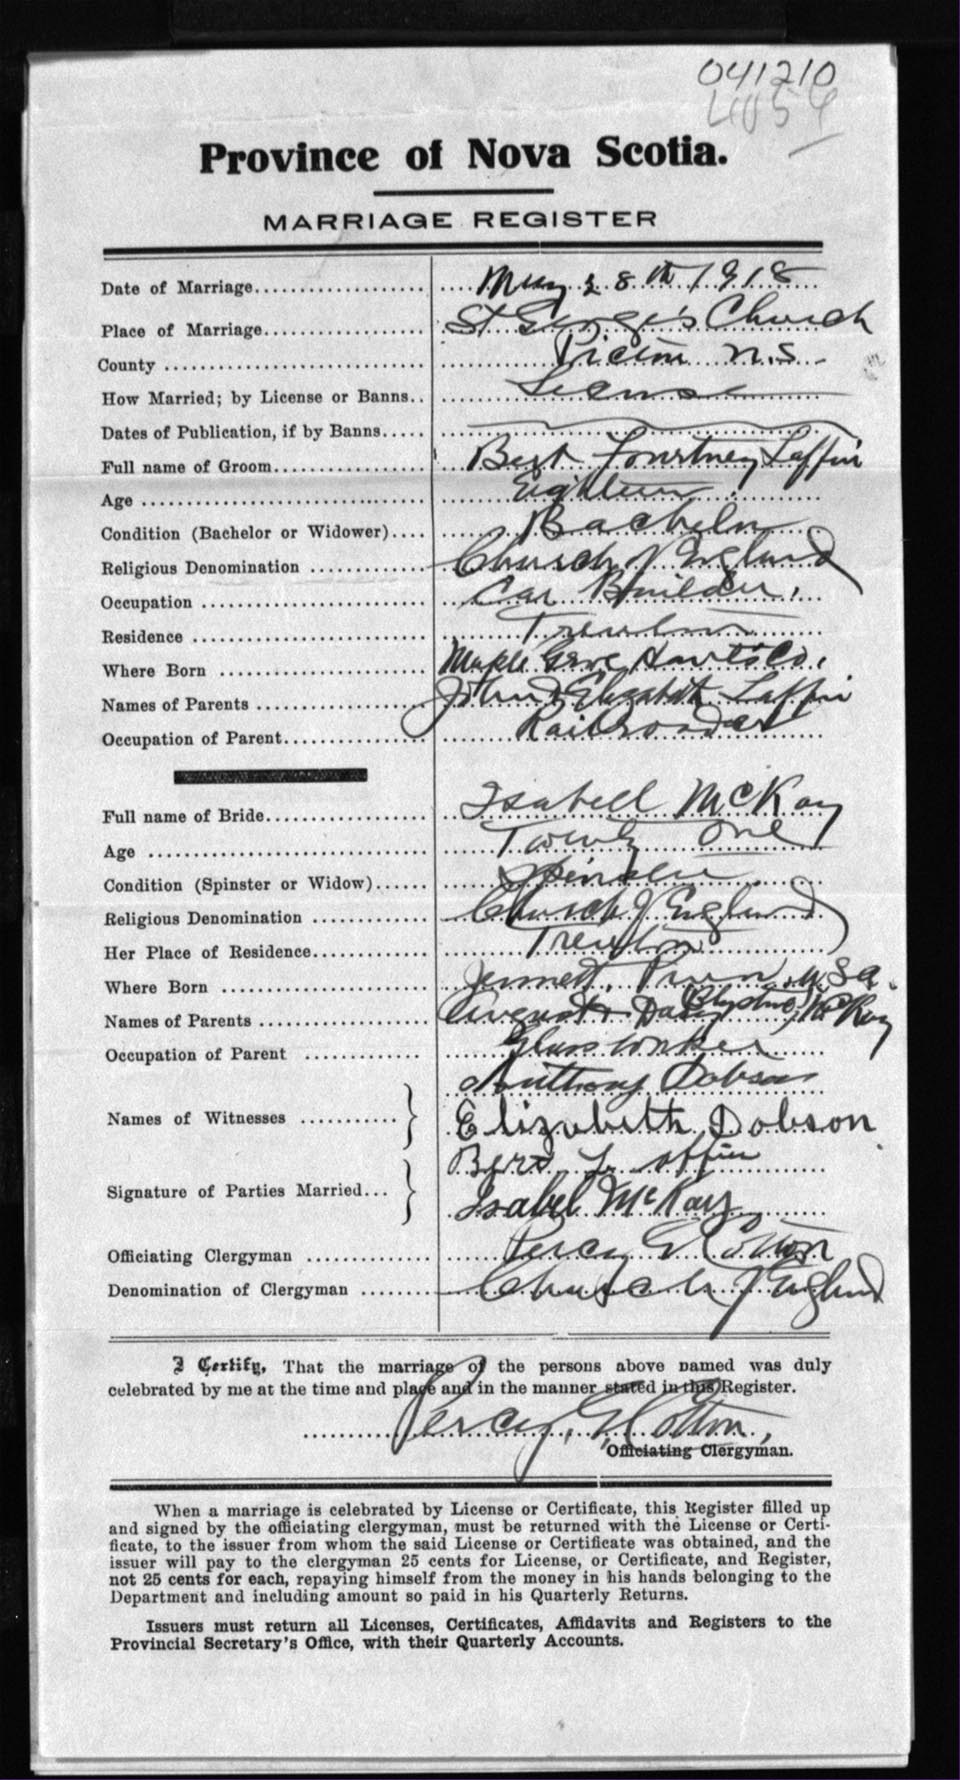 041210
Province of Nova Scotia.
MARRIAGE REGISTER
Date of Marriage.................... May 28th 1918
Place of Marriage................... St George's Church
County .............................. Pictou N.S.
How Married; by License or Banns.. License
Dates of Publication, if by Banns.....
Full name of Groom.................. Bert Laffin
Age .................................. Eighteen
Condition (Bachelor or Widower).... Bachelor
Religious Denomination ............ Church of England
Occupation .......................... Car Builder,
Residence ........................... Trenton
Where Born ......................... Maple Grove Hants Co.
Names of Parents .................... John & Elizabeth Laffin
Occupation of Parent................. Railroader
Full name of Bride................... Isabell McKay
Age .................................. Twenty One
Condition (Spinster or Widow)...... Spinster
Religious Denomination ............ Church of England
Her Place of Residence.............. Trenton
Where Born ......................... Jennett, Penn U.S.A.
Names of Parents .................... McKay
Occupation of Parent ............... Glass worker
Anthony Dobson
Names of Witnesses ........... Elizabeth Dobson
Bert Laffin
Signature of Parties Married... Isabel McKay
Officiating Clergyman .............. Percy G Cotton
Denomination of Clergyman ........ Church of England
I Certify, That the marriage of the persons above named was duly
celebrated by me at the time and place and in the manner stated in this Register.
Percy G Cotton,
Officiating Clergyman.
When a marriage is celebrated by License or Certificate, this Register filled up
and signed by the officiating clergyman, must be returned with the License or Certi-
ficate, to the issuer from whom the said License or Certificate was obtained, and the
issuer will pay to the clergyman 25 cents for License, or Certificate, and Register,
not 25 cents for each, repaying himself from the money in his hands belonging to the
Department and including amount so paid in his Quarterly Returns.
Issuers must return all Licenses, Certificates, Affidavits and Registers to the
Provincial Secretary's Office, with their Quarterly Accounts.